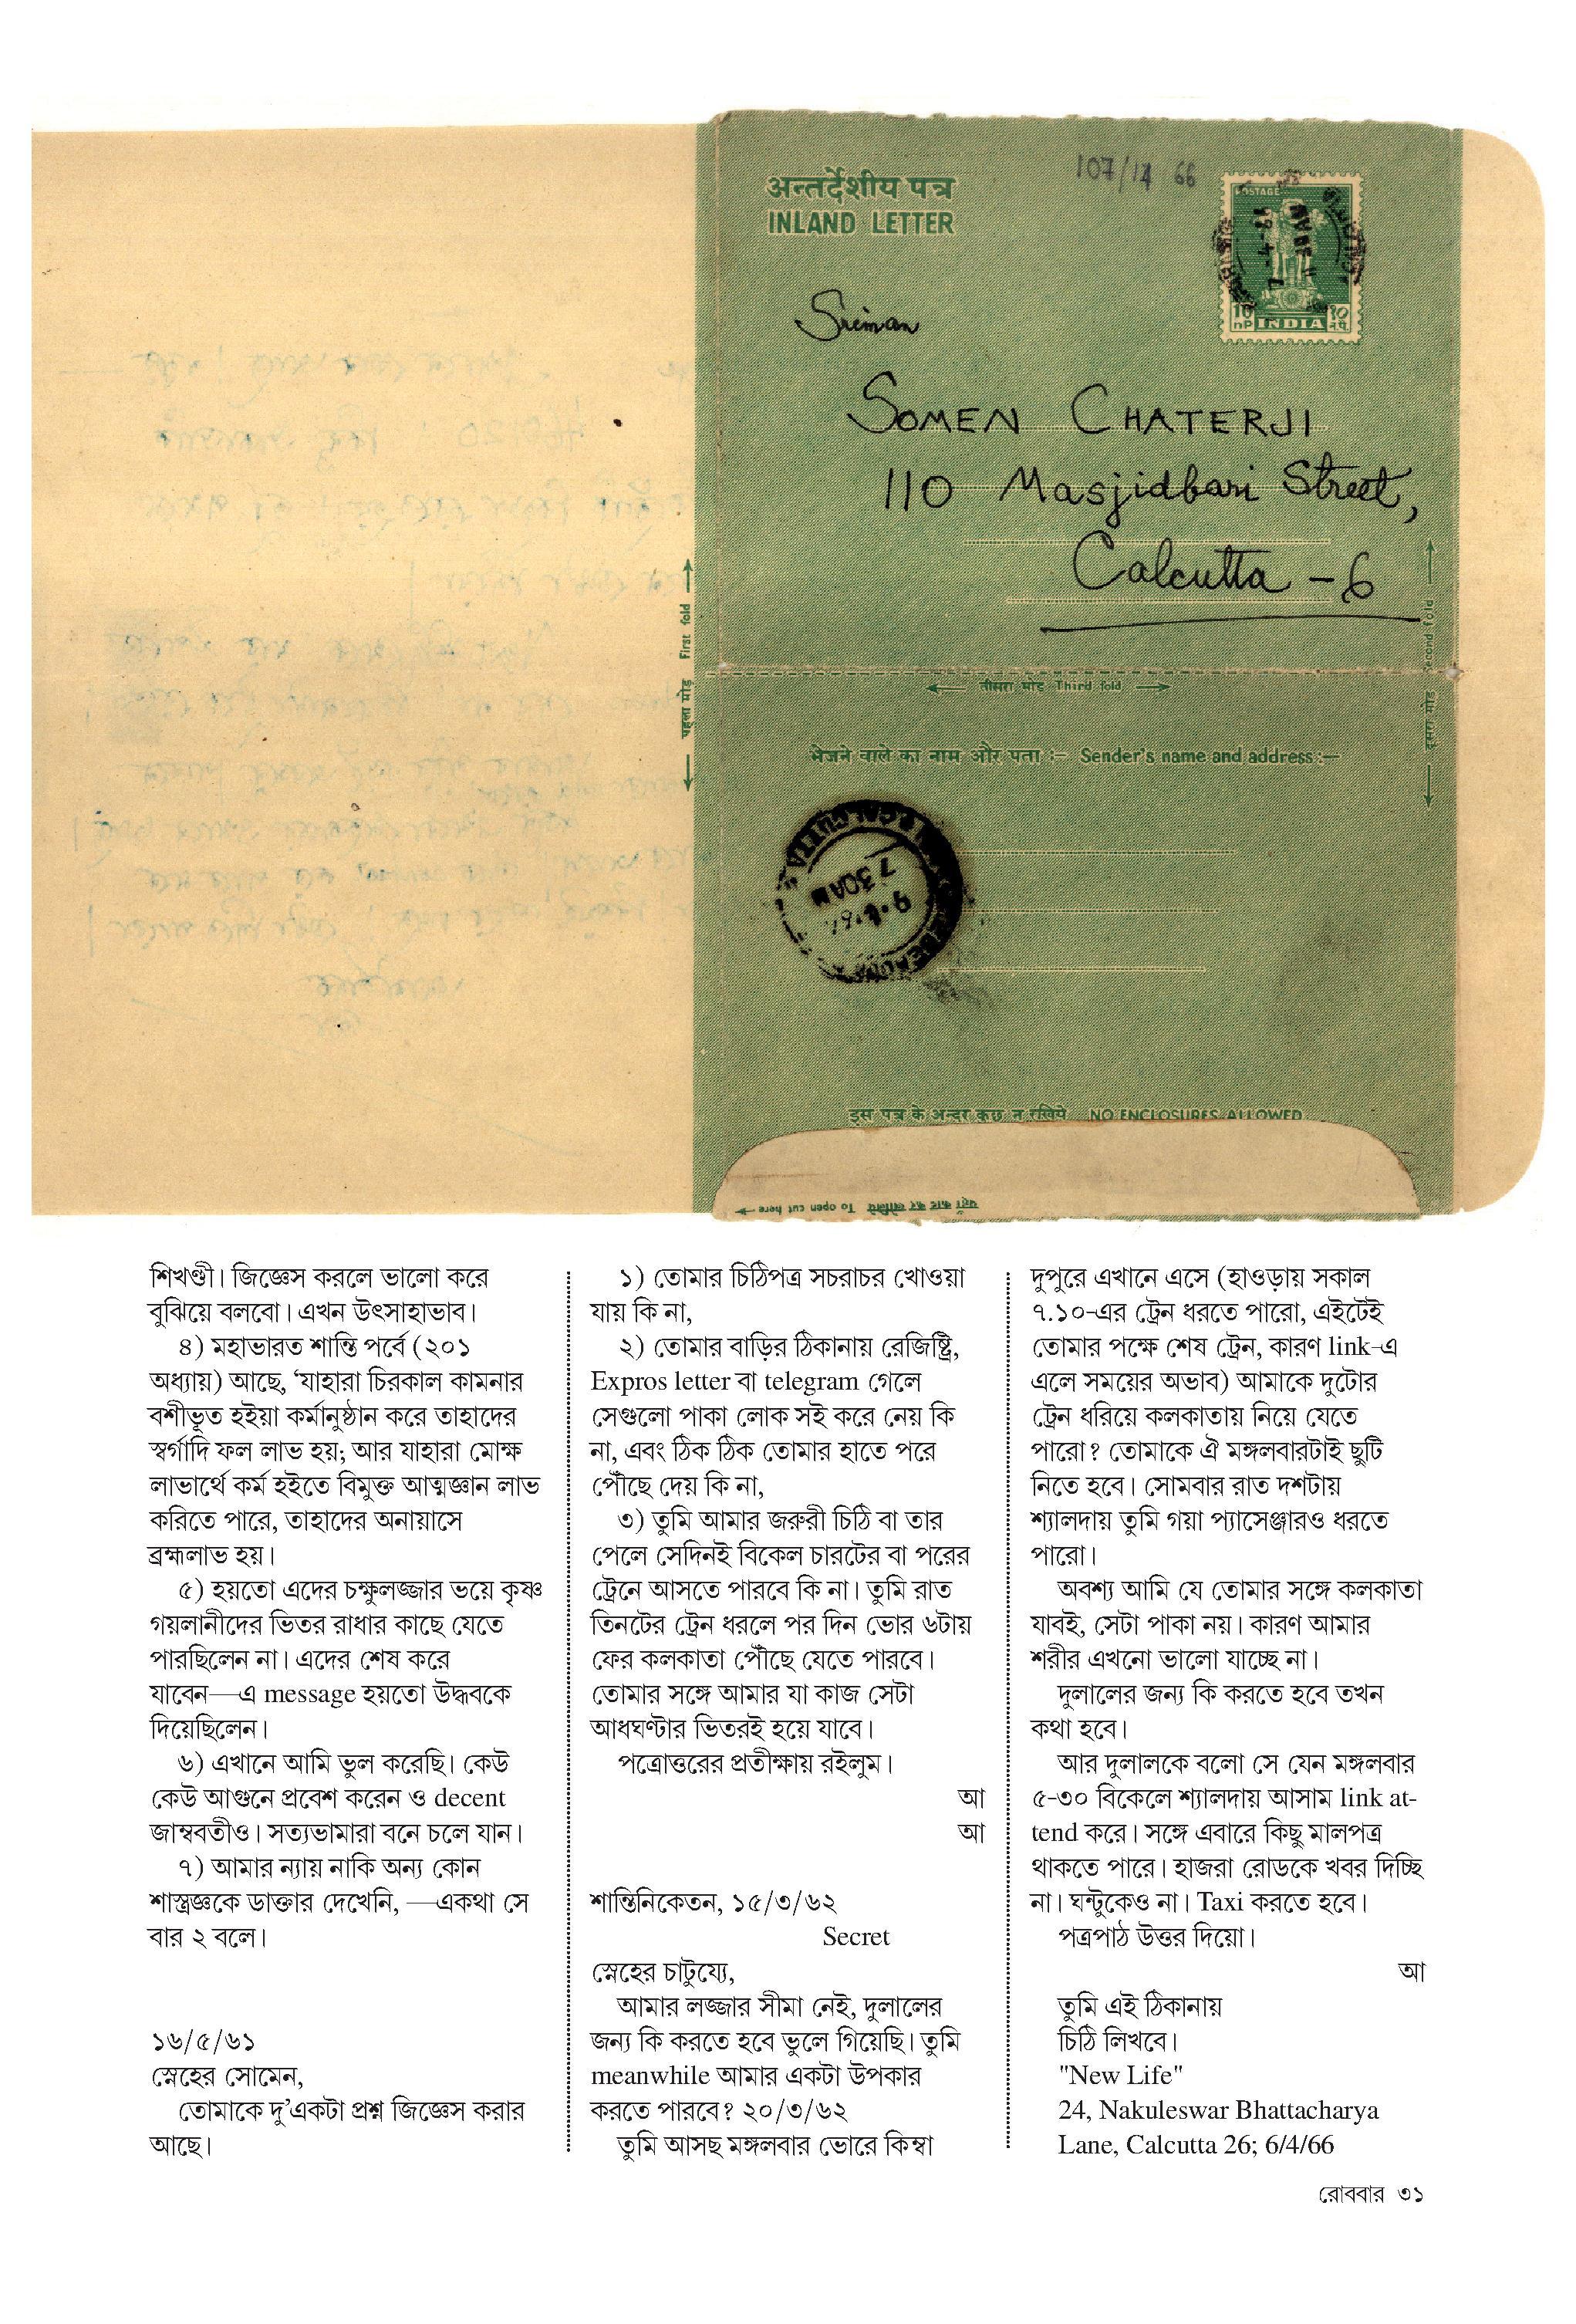 107/14 66
अन्तर्देशीय पत्र
INLAND LETTER
POSTAGE
10 nP INDIA १० नप
Sriman
SOMEN CHATERJI
110 Masjidbari Street,
Calcutta - 6
पहला मोड़ First fold
दूसरा मोड़ Second fold
तीसरा मोड़ Third fold
भेजने वाले का नाम और पता :- Sender's name and address:-
CALCUTTA
7 30AM
इस पत्र के अन्दर कुछ न रखिये NO ENCLOSURES ALLOWED
यहाँ काट कर खोलिये To open cut here
শিখণ্ডী। জিজ্ঞেস করলে ভালো করে
বুঝিয়ে বলবো। এখন উৎসাহাভাব।
৪) মহাভারত শান্তি পর্বে (২০১
অধ্যায়) আছে, ‘যাহারা চিরকাল কামনার
বশীভূত হইয়া কর্মানুষ্ঠান করে তাহাদের
স্বর্গাদি ফল লাভ হয়; আর যাহারা মোক্ষ
লাভার্থে কর্ম হইতে বিমুক্ত আত্মজ্ঞান লাভ
করিতে পারে, তাহাদের অনায়াসে
ব্রহ্মলাভ হয়।
৫) হয়তো এদের চক্ষুলজ্জার ভয়ে কৃষ্ণ
গয়লানীদের ভিতর রাধার কাছে যেতে
পারছিলেন না। এদের শেষ করে
যাবেন—এ message হয়তো উদ্ধবকে
দিয়েছিলেন।
৬) এখানে আমি ভুল করেছি। কেউ
কেউ আগুনে প্রবেশ করেন ও decent
জাম্ববতীও। সত্যভামারা বনে চলে যান।
৭) আমার ন্যায় নাকি অন্য কোন
শাস্ত্রজ্ঞকে ডাক্তার দেখেনি, —একথা সে
বার ২ বলে।
১৬/৫/৬১
স্নেহের সোমেন,
তোমাকে দু’একটা প্রশ্ন জিজ্ঞেস করার
আছে।
১) তোমার চিঠিপত্র সচরাচর খোওয়া
যায় কি না,
২) তোমার বাড়ির ঠিকানায় রেজিষ্ট্রি,
Expros letter বা telegram গেলে
সেগুলো পাকা লোক সই করে নেয় কি
না, এবং ঠিক ঠিক তোমার হাতে পরে
পৌঁছে দেয় কি না,
৩) তুমি আমার জরুরী চিঠি বা তার
পেলে সেদিনই বিকেল চারটের বা পরের
ট্রেনে আসতে পারবে কি না। তুমি রাত
তিনটের ট্রেন ধরলে পর দিন ভোর ৬টায়
ফের কলকাতা পৌঁছে যেতে পারবে।
তোমার সঙ্গে আমার যা কাজ সেটা
আধঘণ্টার ভিতরই হয়ে যাবে।
পত্রোত্তরের প্রতীক্ষায় রইলুম।
আ
আ
শান্তিনিকেতন, ১৫/৩/৬২
Secret
স্নেহের চাটুয্যে,
আমার লজ্জার সীমা নেই, দুলালের
জন্য কি করতে হবে ভুলে গিয়েছি। তুমি
meanwhile আমার একটা উপকার
করতে পারবে? ২০/৩/৬২
তুমি আসছ মঙ্গলবার ভোরে কিম্বা
দুপুরে এখানে এসে (হাওড়ায় সকাল
৭.১০-এর ট্রেন ধরতে পারো, এইটেই
তোমার পক্ষে শেষ ট্রেন, কারণ link-এ
এলে সময়ের অভাব) আমাকে দুটোর
ট্রেন ধরিয়ে কলকাতায় নিয়ে যেতে
পারো? তোমাকে ঐ মঙ্গলবারটাই ছুটি
নিতে হবে। সোমবার রাত দশটায়
শ্যালদায় তুমি গয়া প্যাসেঞ্জারও ধরতে
পারো।
অবশ্য আমি যে তোমার সঙ্গে কলকাতা
যাবই, সেটা পাকা নয়। কারণ আমার
শরীর এখনো ভালো যাচ্ছে না।
দুলালের জন্য কি করতে হবে তখন
কথা হবে।
আর দুলালকে বলো সে যেন মঙ্গলবার
৫-৩০ বিকেলে শ্যালদায় আসাম link at-
tend করে। সঙ্গে এবারে কিছু মালপত্র
থাকতে পারে। হাজরা রোডকে খবর দিচ্ছি
না। ঘন্টুকেও না। Taxi করতে হবে।
পত্রপাঠ উত্তর দিয়ো।
আ
তুমি এই ঠিকানায়
চিঠি লিখবে।
"New Life"
24, Nakuleswar Bhattacharya
Lane, Calcutta 26; 6/4/66
রোববার ৩১